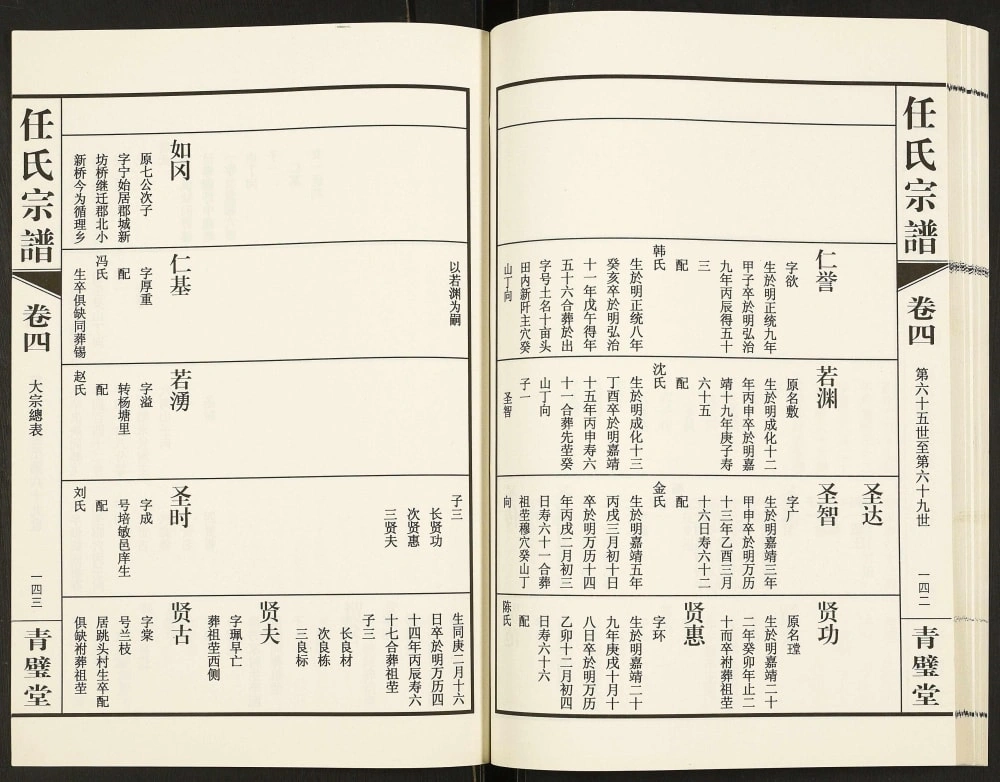 任氏宗譜
卷四
第六十五世至第六十九世
一四二
青璧堂
仁誉
字欲
生於明正统九年
甲子卒於明弘治
九年丙辰得五十
三
配
韩氏
生於明正统八年
癸亥卒於明弘治
十一年戊午得年
五十六合葬於出
字号土名十亩头
田内新阡主穴癸
山丁向
若渊
原名敷
生於明成化十二
年丙申卒於明嘉
靖十九年庚子寿
六十五
配
沈氏
生於明成化十三
丁酉卒於明嘉靖
十五年丙申寿六
十一合葬先茔癸
山丁向
子一
圣智
圣达
圣智
字广
生於明嘉靖三年
甲申卒於明万历
十三年乙酉三月
十六日寿六十二
配
金氏
生於明嘉靖五年
丙戌三月初十日
卒於明万历十四
年丙戌二月初三
日寿六十一合葬
祖茔穆穴癸山丁
向
贤功
原名瑝
生於明嘉靖二十
二年癸卯年止二
十而卒祔葬祖茔
贤惠
字环
生於明嘉靖二十
九年庚戌十月十
八日卒於明万历
乙卯十二月初四
日寿六十六
配
陈氏
以若渊为嗣
子三
长贤功
次贤惠
三贤夫
生同庚二月十六
日卒於明万历四
十四年丙辰寿六
十七合葬祖茔
子三
长良材
次良栋
三良标
贤夫
字珮早亡
葬祖茔西侧
如冈
原七公次子
字宁始居郡城新
坊桥继迁郡北小
新桥今为循理乡
仁基
字厚重
配
冯氏
生卒俱缺同葬锡
若湧
字溢
转杨塘里
配
赵氏
圣时
字成
号培敏邑庠生
配
刘氏
贤古
字棠
号兰枝
居跳头村生卒配
俱缺祔葬祖茔
任氏宗譜
卷四
大宗總表
一四三
青璧堂